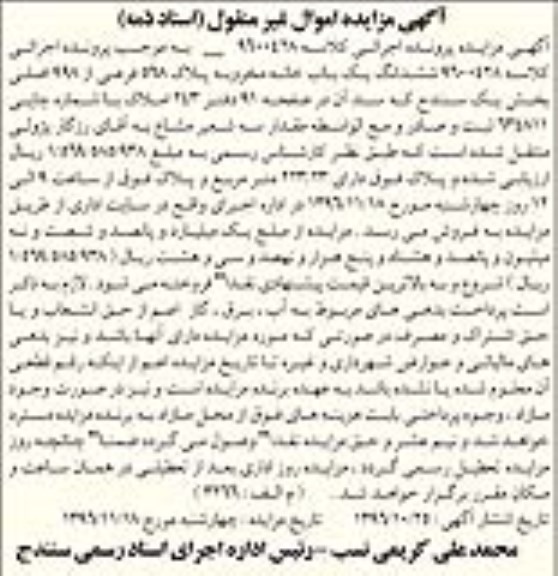 آگهی مزایده اموال غیر منقول (اسناد ذمه)
آگهی مزایده پرونده اجرائی کلاسه ۹۶۰۰۴۶۸ __ به موجب پرونده اجرائی
کلاسه ششدانگ یک باب خانه مخروبه پلاک ۵۶۸ فرعی از ۹۹۸ اصلی
بخش یک سنندج که سند آن در صفحه ۹۱ دفتر ۲۴۳ املاک با شماره چاپی
ثبت و صادر و مع الواسطه مقدار سه شعیر مشاع به آقای رزگار
منتقل شده است که طبق نظر کارشناس رسمی به مبلغ ۱/۵۶۹/۵۸۵/۹۳۸ ریال
ارزیابی شده و پلاک فوق دارای ۲۲۳.۲۳ متر مربع و پلاک فوق از ساعت ۹ الی
۱۲ روز چهارشنبه مورخ ۱۳۹۶/۱۱/۱۸ در اداره اجرای واقع در سایت اداری از طریق
مزایده به فروش می رسد. مزایده از مبلغ یک میلیارد و پانصد و شصت و نه
میلیون و پانصد و هشتاد و پنج هزار و نهصد و سی و هشت ریال (۱/۵۶۹/۵۸۵/۹۳۸
ریال) شروع و به بالاترین قیمت پیشنهادی نقدا" فروخته می شود. لازم به ذکر
است پرداخت بدهی های مربوط به آب، برق، گاز اعم از حق انشعاب و یا
حق اشتراک و مصرف در صورتی که مورد مزایده دارای آنها باشد و نیز بدهی
های مالیاتی و عوارض شهرداری و غیره تا تاریخ مزایده اعم از اینکه رقم قطعی
آن معلوم شده یا نشده باشد به عهده برنده مزایده است و نیز در صورت وجود
مازاد، وجوه پرداختی بابت هزینه های فوق از محل مازاد به برنده مزایده مسترد
خواهد شد و نیم عشر و حق مزایده نقدا" وصول می گردد ضمنا" چنانچه روز
مزایده تعطیل رسمی گردد، مزایده روز اداری بعد از تعطیلی در همان ساعت و
مکان مقرر برگزار خواهد شد. (م الف: )
تاریخ انتشار آگهی: ۱۳۹۶/۱۰/۲۵ تاریخ مزایده: چهارشنبه مورخ ۱۳۹۶/۱۱/۱۸
محمد علی کریمی نسب - رئیس اداره اجرای اسناد رسمی سنندج